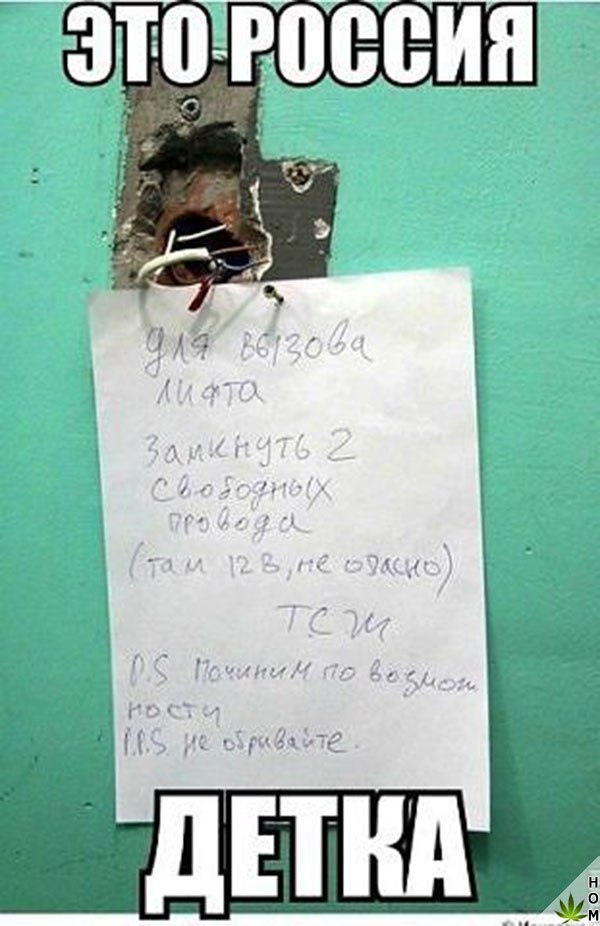 ЭТО РОССИЯ
Для вызова
лифта
Замкнуть 2
свободных
провода
(там 12 В, не опасно)
ТСЖ
P.S Починим по возмож
ности
P.P.S. не обривайте.
ДЕТКА
НОМ